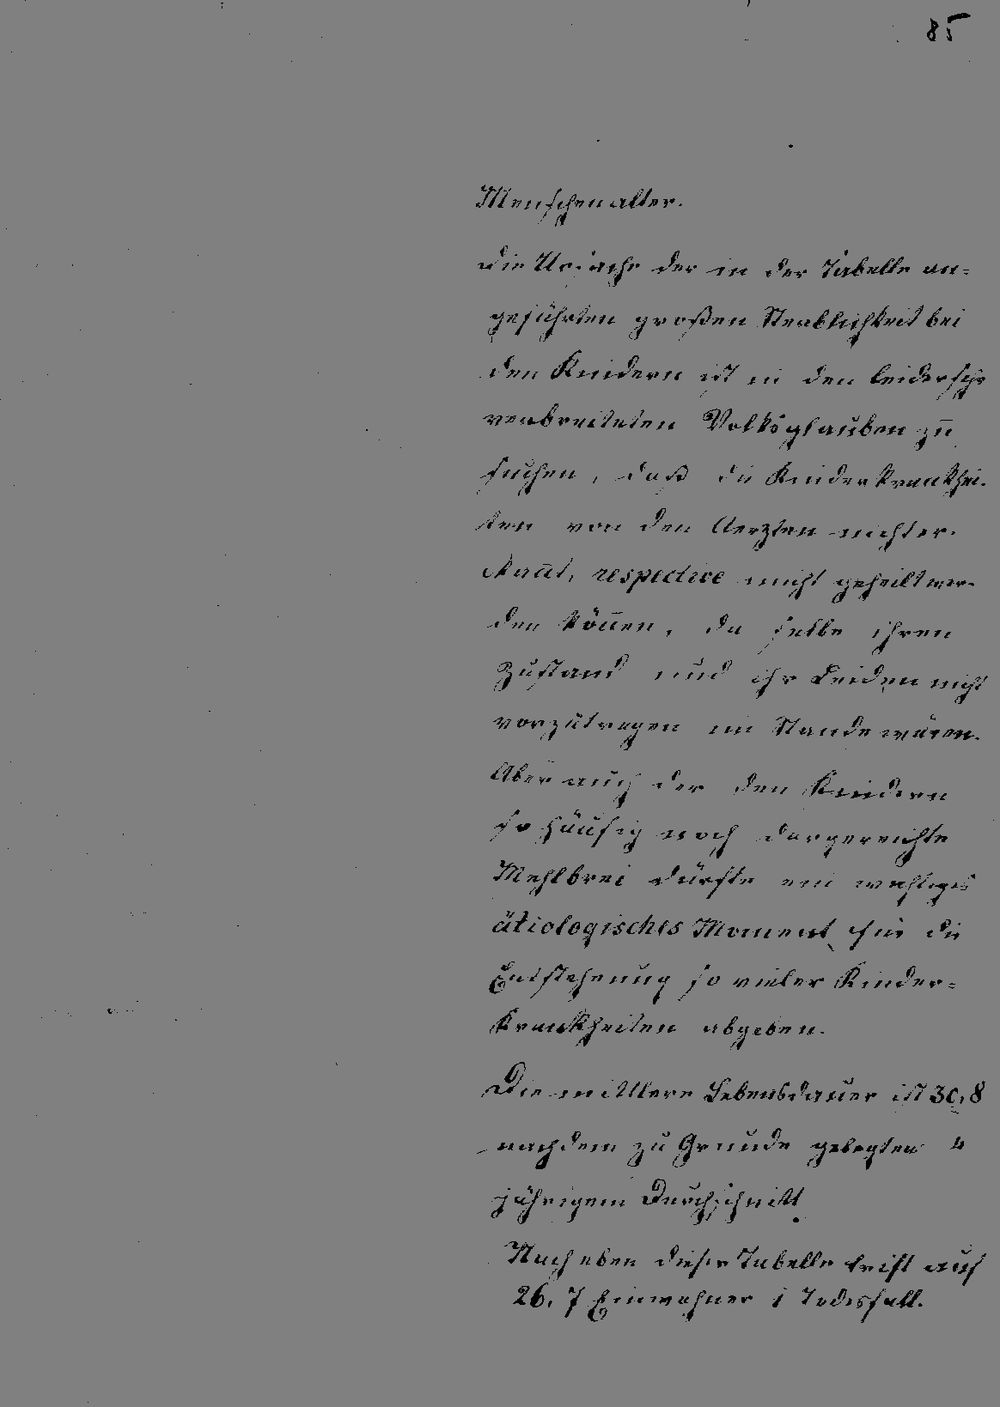 85
Menschenalter.
Die Ursache der in der Tabelle an=
geführten großen Sterblichkeit bei
den Kindern ist in den leider sehr
verbreiteten Volksglauben zu
suchen, daß die Kinderkrankhei-
ten von den Aerzten nicht er-
kannt, respective nicht geheilt wer-
den können, da selbe ihren
Zustand und ihr Leiden nicht
vorzutragen im Stande wären.
Aber auch der den Kindern
so häufig noch dargereichte
Mehlbrei dürfte ein wichtiges
ätiologisches Moment für die
Entstehung so vieler Kinder=
Krankheiten abgeben.
Die mittlere Lebensdauer ist 30,8
nach dem zu Grunde gelegten 4
jährigem Durchschnitt
Nach eben dieser Tabelle trift auf
26,7 Einwohner 1 Todesfall.